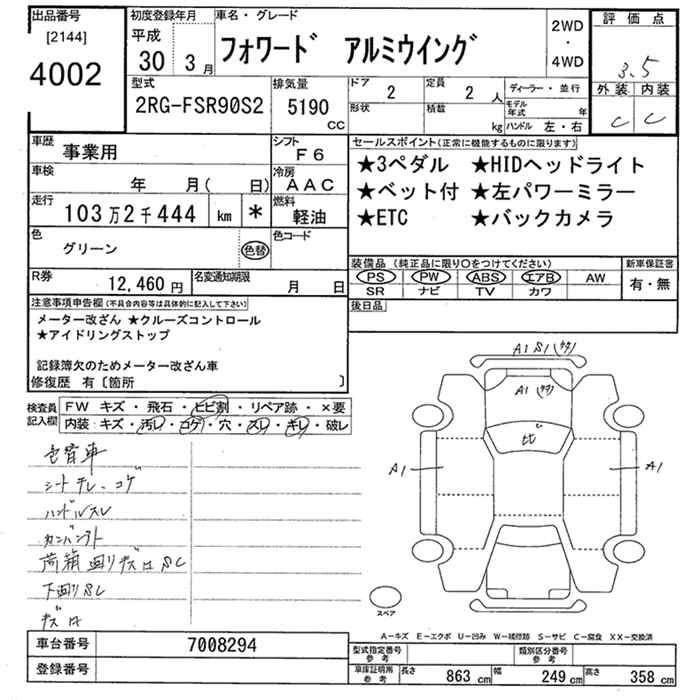 出品番号
[2144]
4002
初度登録年月
平成
30 3月
車名・グレード
フォワード アルミウイング
2WD
・
4WD
評価点
3.5
外装 内装
C C
型式
2RG-FSR90S2
排気量
5190
CC
ドア
2
定員
2 人
形状
積載
kg
ディーラー・並行
モデル年式 年
ハンドル 左・右
車歴
事業用
シフト
F6
車検
年 月( 日)
冷房
AAC
走行
103万2千444 km *
燃料
軽油
色
グリーン
色替
色コード
セールスポイント(正常に機能するものに限ります)
★3ペダル ★HIDヘッドライト
★ベット付 ★左パワーミラー
★ETC ★バックカメラ
装備品 (純正品に限り○をつけてください)
新車保証書
PS PW ABS エアB AW
SR ナビ TV カワ
有・無
R券
12,460 円
名変通知期限
月 日
後日品
注意事項申告欄(不具合内容等は具体的に記入して下さい)
メーター改ざん ★クルーズコントロール
★アイドリングストップ
記録簿欠のためメーター改ざん車
修復歴 有〔箇所 〕
検査員記入欄
FW キズ・飛石・ヒビ割・リペア跡・×要
内装:キズ・汚レ・コゲ・穴・スレ・キレ・破レ
色替車
シートチレ、コゲ
ハンドルスレ
カンバントト
荷箱廻りキズ凹SC
下廻りSC
キズ凹
A1 S1
A1
ヒビ
A1
A1
スペア
A-キズ E-エクボ U-凹み W-補修跡 S-サビ C-腐食 XX-交換済
車台番号
7008294
登録番号
型式指定番号
参考
類別区分番号
参考
車庫証明用
参考
長さ 863 cm 幅 249 cm 高さ 358 cm